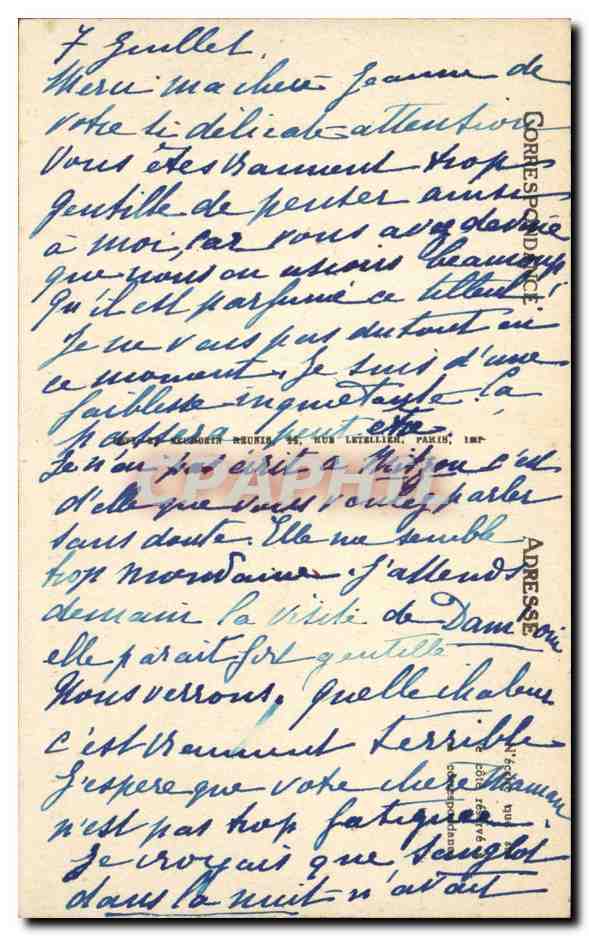 7 Juillet.
Merci ma chère Jeanne de
votre si délicate attention
Vous êtes vraiment trop
gentille de penser ainsi
à moi, car vous avez deviné
que nous en usions beaucoup,
Qu'il est parfumé ce tilleul!
Je ne vais pas du tout en
ce moment. Je suis d'une
faiblesse inquiétante. Ca
passera peut être
Je n'ai pas écrit a c'est
d'elle que vous voulez parler
sans doute. Elle me semble
trop mondaine. J'attends
demain la visite de
elle parait fort gentille
Nous verrons. Quelle chaleur
c'est vraiment terrible
J'espere que votre chere Maman
n'est pas trop fatiguée.
Je croyais que Sanglot
dans la nuit n'avait
CORRESPONDANCE
ADRESSE
RÉUNIS 44, RUE LETELLIER, PARIS, IMP
N'écrire que
le côté réservé
correspondance
CPAPHIL